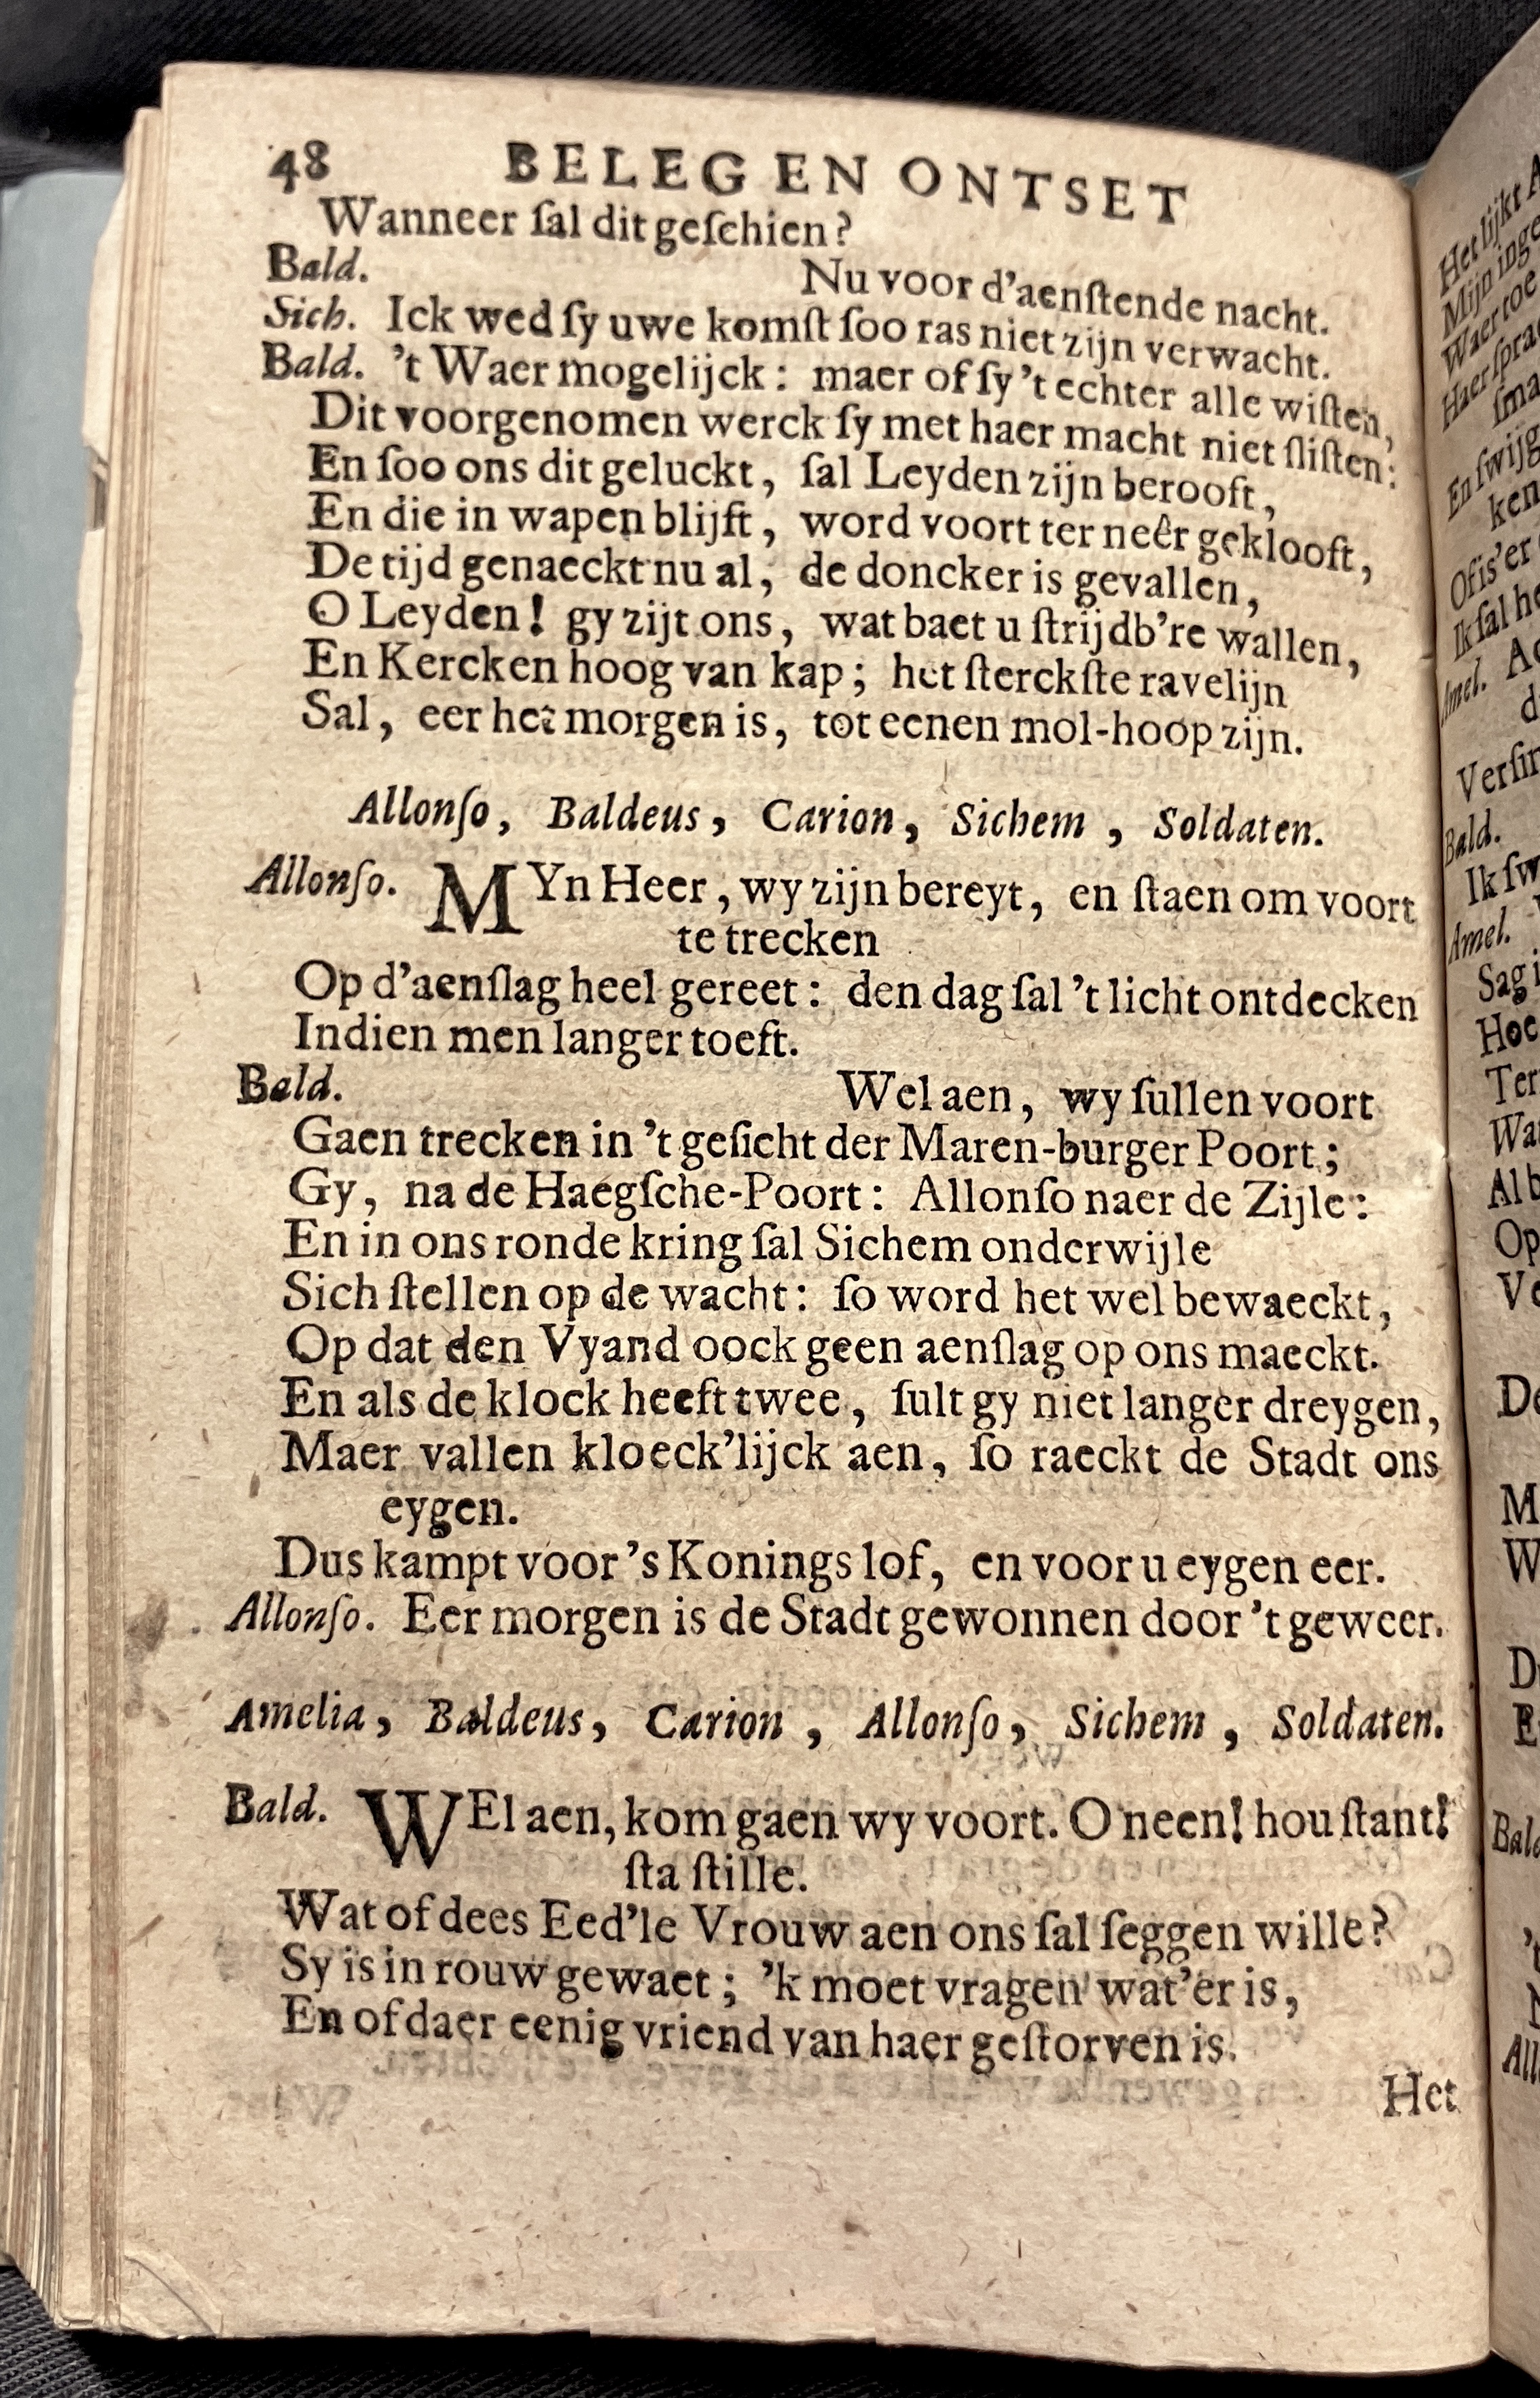 48 BELEG EN ONTSET
Wanneer ſal dit geſchien?
Bald. Nu voor d'aenſtende nacht.
Sich. Ick wed ſy uwe komſt ſoo ras niet zijn verwacht.
Bald. 't Waer mogelijck: maer of ſy 't echter alle wiſten,
Dit voorgenomen werck ſy met haer macht niet ſliſten:
En ſoo ons dit geluckt, ſal Leyden zijn berooft,
En die in wapen blijft, word voort ter neêr geklooft,
De tijd genaeckt nu al, de doncker is gevallen,
O Leyden! gy zijt ons, wat baet u ſtrijdb're wallen,
En Kercken hoog van kap; het ſterckſte ravelijn
Sal, eer het morgen is, tot eenen mol-hoop zijn.
Allonſo, Baldeus, Carion, Sichem, Soldaten.
Allonſo. MYn Heer, wy zijn bereyt, en ſtaen om voort
te trecken
Op d'aenſlag heel gereet: den dag ſal 't licht ontdecken
Indien men langer toeft.
Bald. Wel aen, wy ſullen voort
Gaen trecken in 't geſicht der Maren-burger Poort;
Gy, na de Haegſche-Poort: Allonſo naer de Zijle:
En in ons ronde kring ſal Sichem onderwijle
Sich ſtellen op de wacht: ſo word het wel bewaeckt,
Op dat den Vyand oock geen aenſlag op ons maeckt.
En als de klock heeft twee, ſult gy niet langer dreygen,
Maer vallen kloeck'lijck aen, ſo raeckt de Stadt ons
eygen.
Dus kampt voor 's Konings lof, en voor u eygen eer.
Allonſo. Eer morgen is de Stadt gewonnen door 't geweer.
Amelia, Baldeus, Carion, Allonſo, Sichem, Soldaten.
Bald. WEl aen, kom gaen wy voort. O neen! hou ſtant!
ſta ſtille.
Wat of dees Eed'le Vrouw aen ons ſal ſeggen wille?
Sy is in rouw gewaet; 'k moet vragen wat'er is,
En of daer eenig vriend van haer geſtorven is.
Het